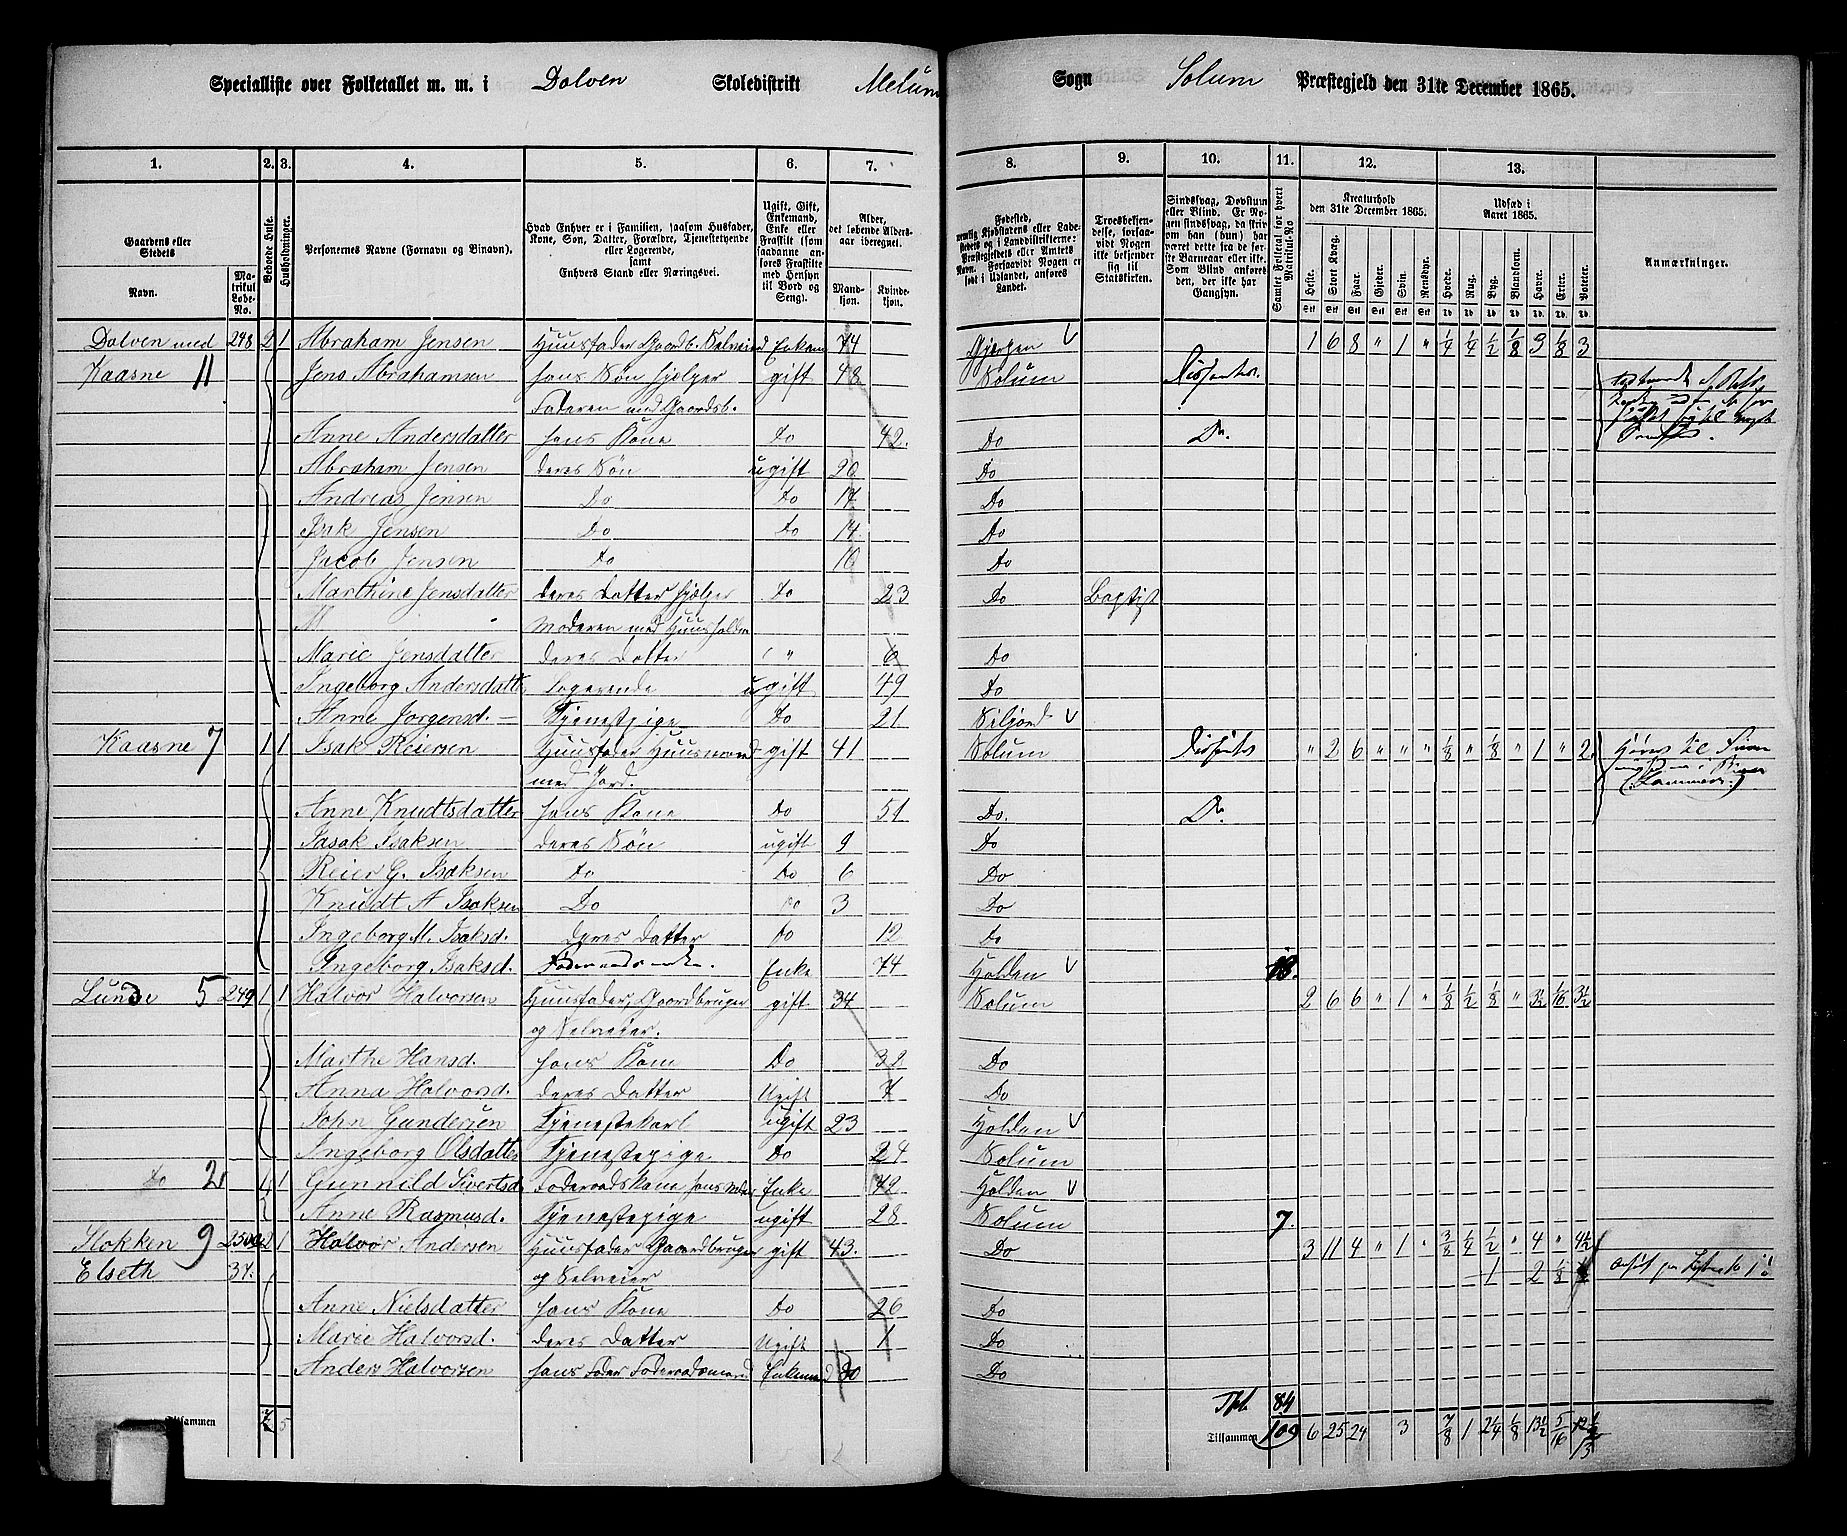 Specialliste over Folketallet m. m. i Dolven Skoledistrikt Melum Sogn Solum Præstegjeld den 31te December 1865.
1. 2. 3. 4. 5. 6. 7. 8. 9. 10. 11. 12. 13.
Gaardens eller Stedets Navn. Matrikul Løbe-No. Beboede Huse. Husholdninger. Personernes Navne (Fornavn og Binavn).
Hvad Enhver er i Familien, saasom Husfader, Kone, Søn, Datter, Forældre, Tjenestetyende eller Logerende, samt Enhvers Stand eller Næringsvei.
Ugift, Gift, Enkemand, Enke eller Fraskilt (som saadanne anføres Fraskilte med Hensyn til Bord og Seng).
Alder, det løbende Alders-aar iberegnet. Mandkjøn. Kvindekjøn.
Trosbekjendelse, forsaavidt Nogen ikke bekjender sig til Statskirken.
Sindssvag, Døvstum eller Blind.
Samlet Folketal for hvert Matrikul-No
Kreaturhold den 31te December 1865. Heste. Stort Kvæg. Faar. Gjeder. Svin. Rensdyr.
Udsæd i Aaret 1865. Hvede. Rug. Byg. Blandkorn. Havre. Erter. Poteter.
Anmærkninger.
Dolven med 248 2 1 Abraham Jensen Huusfader Gaardb. Selveier Enkem 74 Gjerpen 1 6 8 " 1 " 1/4 1/4 1/2 1/8 3 1/8 3
Kaasne 11 Jens Abrahamsen hans Søn hjelper gift 48 Solum Dissenter
Faderen med Gaardsb.
Anne Andersdatter hans Kone Do 42. Do Do.
Abraham Jensen deres Søn ugift 20 Do
Andreas Jensen Do Do 17 Do
Isak Jensen Do Do 14 Do
Jacob Jensen Do 10 Do
Marthine Jensdatter deres Datter hjelper Do 23 Do Baptist
M Moderen med Huusholdn
Marie Jensdatter deres Datter " 6 Do
Ingeborg Andersdatt Logerende ugift 49 Do
Anne Jørgensd. Tjenestpige Do 21 Siljord
Kaasne 7 1 1 Isak Reiersen Huusfader Huusmand gift 41 Solum Dissenter " 2 6 " " " 1/8 " 1/8 " 1 " 2
med Jord.
Anne Knudtsdatter hans Kone Do 51 Do. Do.
Isaak Isaksen deres Søn ugift 9 Do
Reier G. Isaksen Do Do 6 Do
Knudt A Isaksen Do Do 3 Do
Ingeborg M. Isaksd. deres Datter Do 12 Do
Ingeborg Isaksd. Enke 74 Holden 18.
Lunde 5 249 1 1 Halvor Halvorsen Huusfader, Gaardbruger gift 34 Solum 2 6 6 " 1 " 1/8 1/2 1/8 " 3 1/2 1/16 3 1/2
og Selveier.
Marthe Hansd. hans Kone Do 32 Do
Anna Halvorsd. deres Datter Ugift 7 Do
John Gundersen Tjenestekarl ugift 23 Holden
Ingeborg Olsdatter Tjenestepige Do 24 Solum
Do 2 1 1 Gunnild Sivertsd. Foderaadskone hans Moder Enke 72 Holden
Anne Rasmusd. Tjenestepige ugift 28 Solum 7.
Slokken 9 250 2 1 Halvor Andersen Huusfader Gaardbruger gift 43. Do 3 11 4 " 1 " 3/8 1/4 1/2 " 4 " 4 1/2
Elseth 37. og Selveier 1 2 1/8
Anne Nielsdatter hans Kone Do 26 Do
Marie Halvorsd. deres Datter Ugift 1 Do
Anders Halvorsen hans Fader Foderaadsmand Enkemand 80 Do
84
Tilsammen 7 5 Tilsammen 109 6 25 24 3 7/8 1 2 1/4 1/8 13 1/2 5/16
13